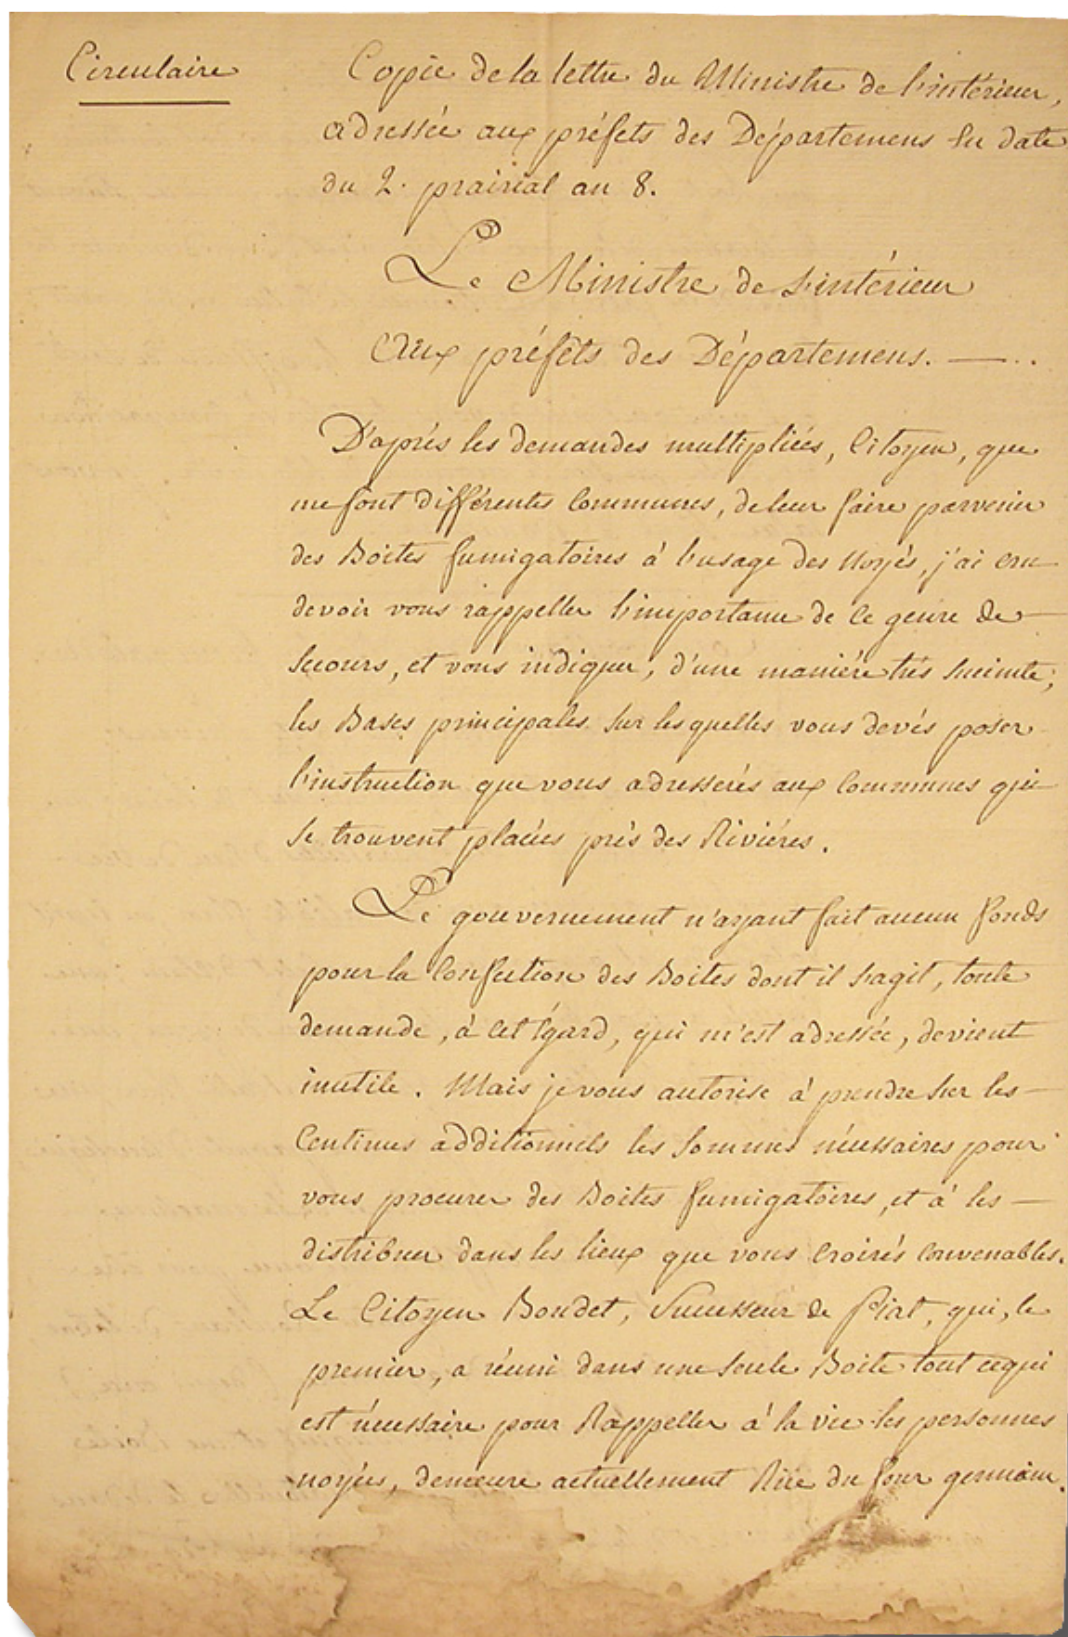 Circulaire
Copie de la lettre du Ministre de l'intérieur,
adressée aux préfets des Départemens En date
du 2. prairial an 8.
Le Ministre de L'intérieur
Aux préfèts des Départemens. — . .
D'après les demandes multipliées, Citoyen, que
me font différentes Communes, de leur faire parvenir
des Boites fumigatoires à l'usage des Noyés, j'ai cru
devoir vous rappeller l'importance de ce genre de —
Secours, et vous indiquer, d'une maniére très Succinte,
les Bases principales sur lesquelles vous devés poser
l'instruction que vous adresserés aux Communes qui
Se trouvent placées près des Riviéres.
Le gouvernement n'ayant fait aucun fonds
pour la Confection des Boites dont il s'agit, toute
demande, à cet Egard, qui m'est adressée, devient
inutile. Mais je vous autorise à prendre sur les —
Centimes additionnels les Sommes nécessaires pour
vous procurer des Boites fumigatoires, et à les —
distribuer dans les lieux que vous croirés convenables.
Le Citoyen Boudet, Successeur de Piat, qui, le
premier, a réuni dans une seule Boite tout cequi
est nécessaire pour Rappeller à la vie les personnes
noyées, demeure actuellement Rüe du four germain.